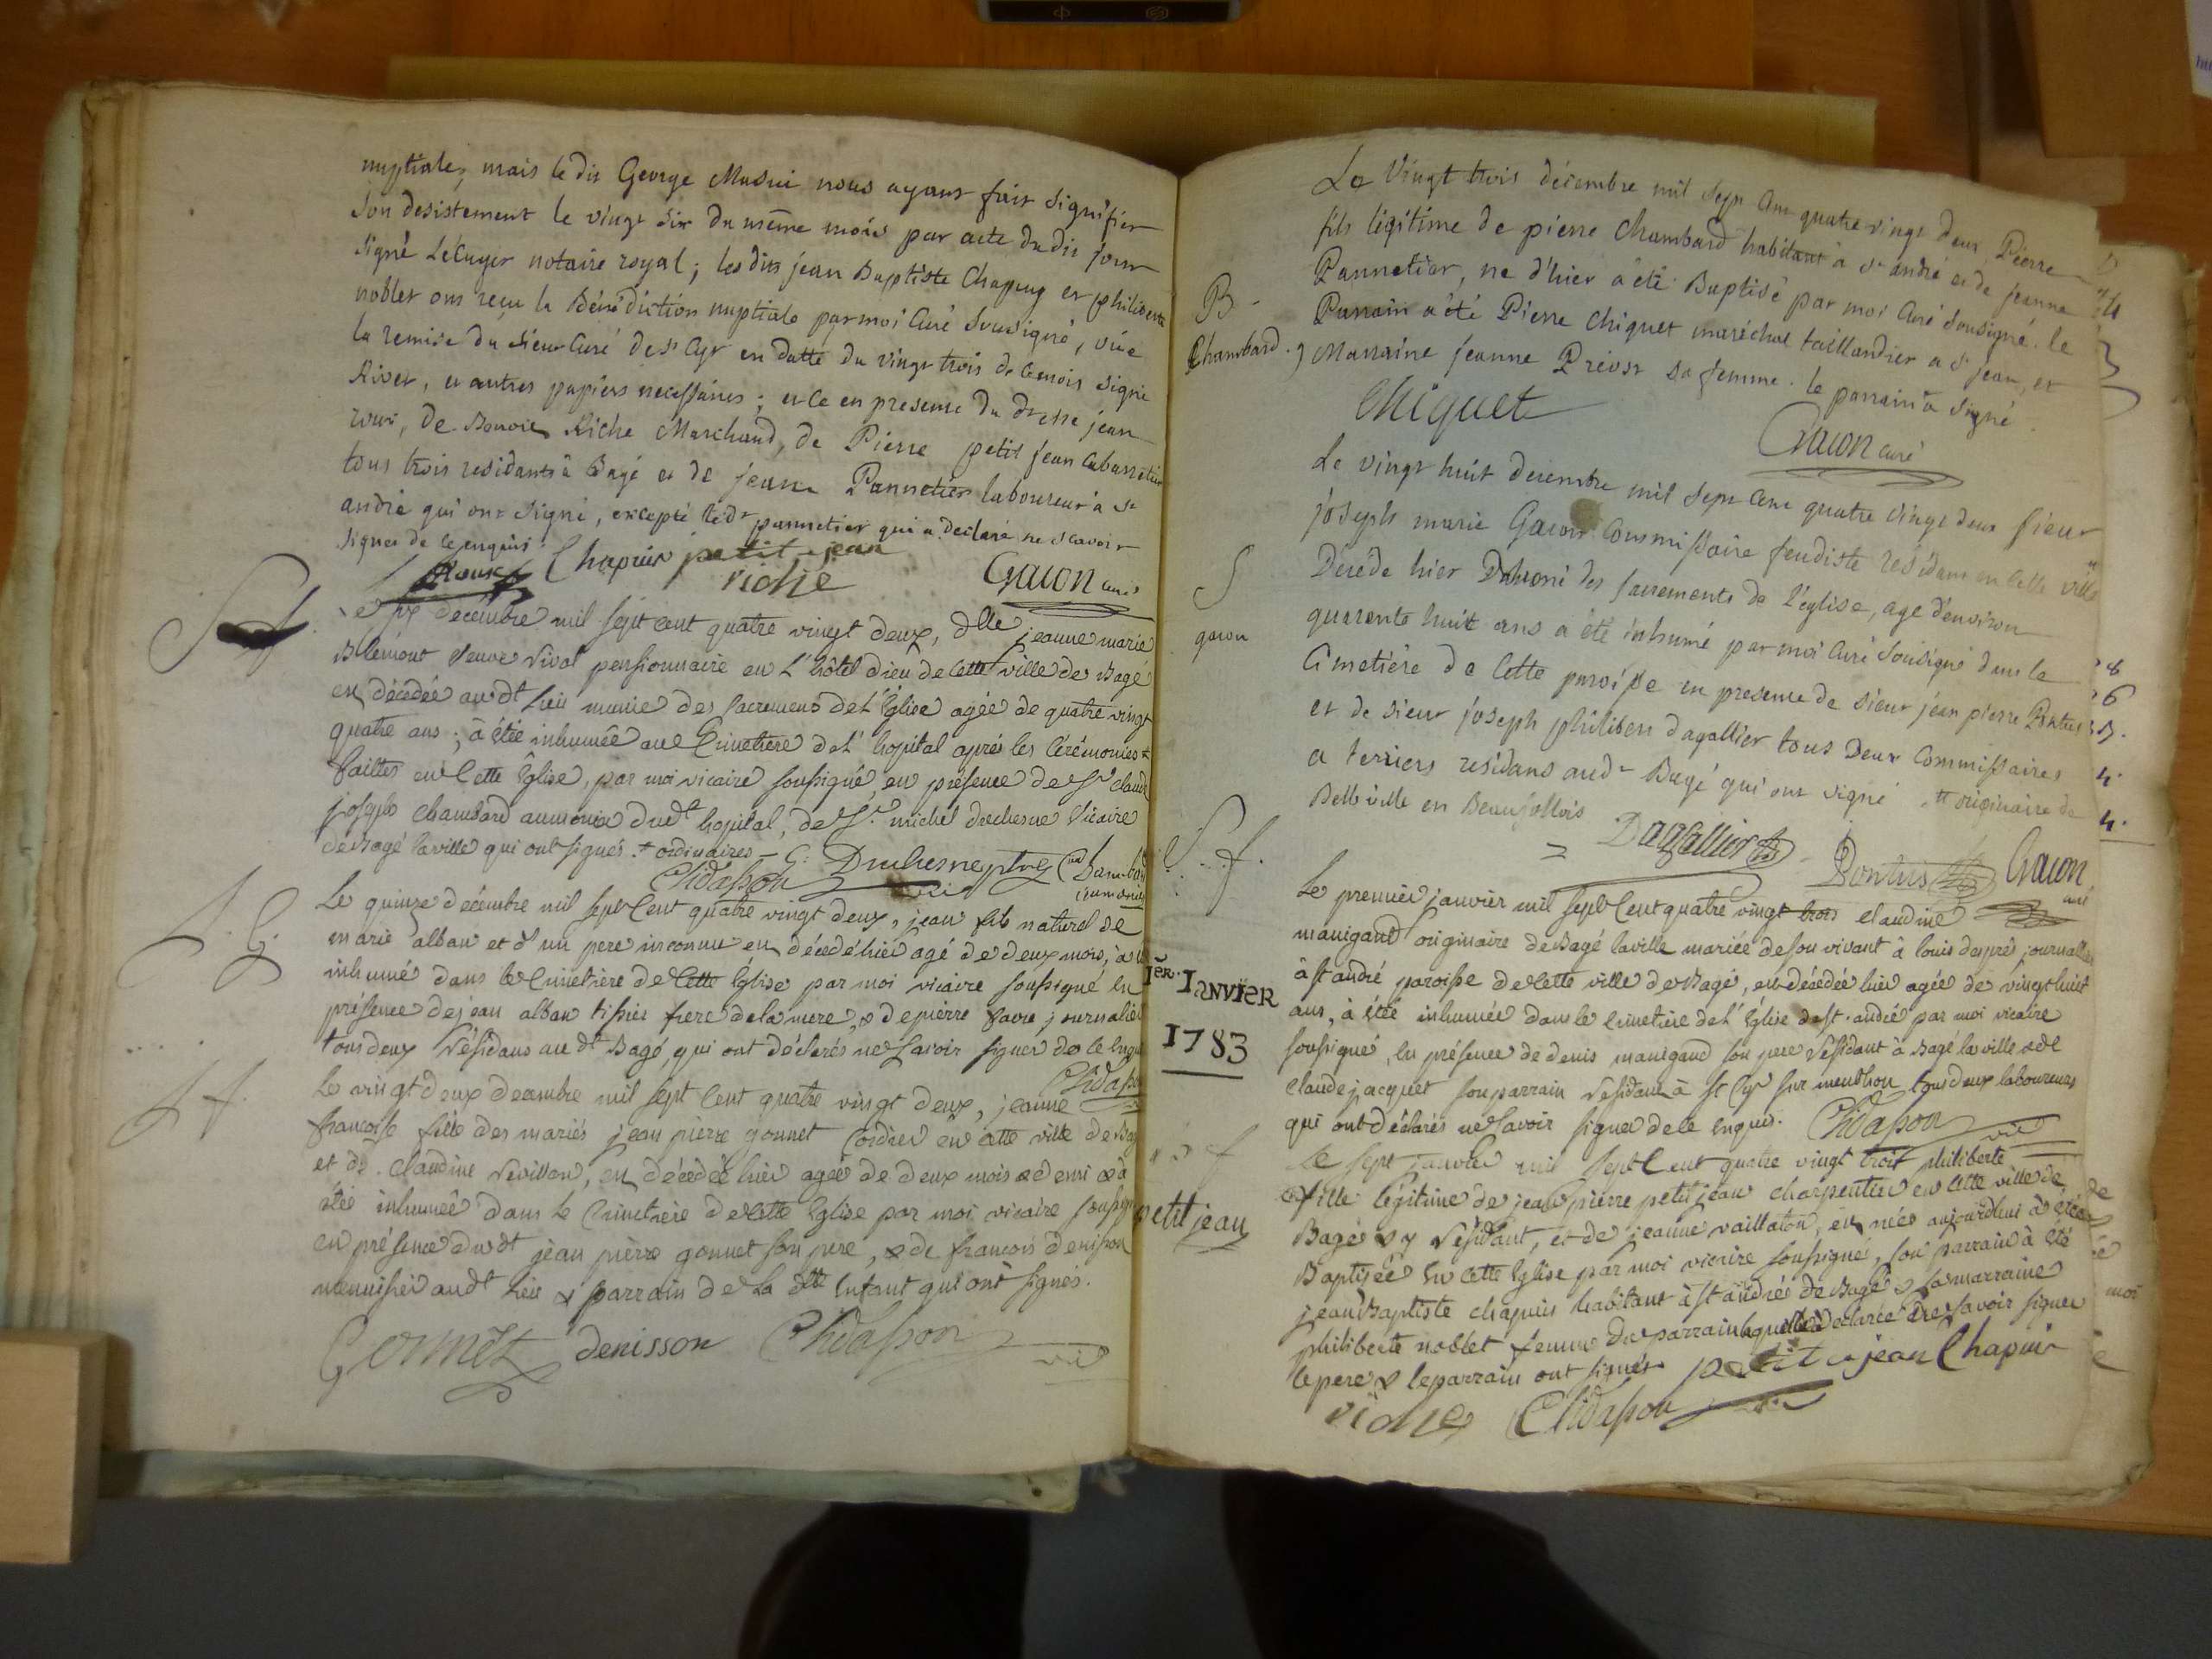 nuptiale, mais le dit George Musni nous ayant fait signifier
son desistement le vingt six du même mois par acte du dit jour
signé Lécuyer notaire royal; les dits jean Baptiste Chapuy et philiberte
noblet ont reçu la Bénédiction nuptiale par moi Curé Sousigné, vûe
la remise du sieur Curé de st Cyr en datte du vingt trois de ce mois signé
River, et autres papiers necessaires; et ce en presence du dr jean
roux, de Benoit Riche Marchand, de Pierre petit jean Cabaretier
tous trois residants à Bagé et de jean Pannetier laboureur à st
andré qui ont signé, excepté le dt pannetier qui a declaré ne scavoir
signer de ce enquis.
Roux Chapuis petit jean
riche Gacon curé
Le dix decembre mil sept cent quatre vingt deux, dlle jeanne marie
Blémont veuve Vivat pensionnaire en l'hôtel dieu de cette ville de Bagé
est décédée audt lieu munie des sacremens de l'Église agée de quatre vingt
quatre ans; à étée inhumée au Cimetiere de l'hopital aprés les Cérémonies +
faittes en Cette Église, par moi vicaire soussigné, en présence de Sr claude
joseph chambard aumonier dudt hopital, de Sr michel duchesne Vicaire
de Bagé la ville qui ont signés. + ordinaires
Chidasson Duhesne ptre Chambard
aumonier
Le quinze décembre mil sept Cent quatre vingt deux, jean fils naturel de
marie alban et d'un pere inconnu est décédé hier agé de deux mois, à été
inhumé dans le Cimetiere de Cette Église par moi vicaire soussigné en
présence de jean alban tissier frere de la mere, & de pierre favre journalier
tous deux Résidans audt Bagé, qui ont déclarés ne savoir signer de ce enquis
Chidasson
Le vingt deux decembre mil sept Cent quatre vingt deux, jeanne
francoise fille des mariés jean pierre gonnet Cordier en cette ville de Bagé
et de claudine Revillon, est décédée hier agée de deux mois & demi & à
étée inhumée dans le Cimetiere de cette Eglise par moi vicaire soussigné
en présence dudt jean pierre gonnet son pere, & de francois denisson
menuisier audt lieu & parrain de la dtte Enfant qui ont signés.
Gonnet denisson Chidasson
vic
Le Vingt trois décembre mil sept Cent quatre vingt deux Pierre
fils légitime de pierre Chambard habitant à st andré et de jeanne
Pannetier, ne d'hier a été Baptisé par moi Curé sousigné. le
B
Parrain a été Pierre Chiquet maréchal taillandier a st jean, et
Chambard.
Marraine jeanne Prévost sa femme. le parrain a signé.
Chiquet
Gacon curé
Le vingt huit decembre mil sept cent quatre vingt deux sieur
joseph marie Gacon Commissaire feudiste résidant en cette ville
S
Décédé hier Muni des sacrements de l'église, age d'environ
gacon
quarente huit ans a été inhumé par moi Curé Sousigné dans le
Cimetière de Cette paroisse en presence de sieur jean pierre Pontus
et de sieur joseph philibert dagallier tous Deux Commissaires
a terriers residans audt Bagé qui ont signé # originaire de
Belleville en Beaujollois
Dagallier Pontus Gacon
curé
Le premier janvier mil sept Cent quatre vingt trois claudine
manigand originaire de Bagé la ville mariée de son vivant à louis després journallier
à st andré paroisse de cette ville de Bagé, est décédée hier agée de vingt huit
1er. JANVIER
ans, à étée inhumée dans le cimetiere de l'Église de st. andré par moi vicaire
1783
soussigné, en présence de denis manigand son pere résidant à Bagé la ville & de
claude jacquet son parrain résidant à st Cyr sur menthon tous deux laboureurs
qui ont déclarés ne savoir signer de ce enquis. Chidasson vic
Le sept janvier mil sept Cent quatre vingt trois philiberte
fille légitime de jean pierre petit jean charpentier en cette ville de
petit jean
Bagé & y Résidant, et de jeanne vaillaton, est née aujourdhui à étée
Baptisée En cette Église par moi vicaire soussigné, son parrain à été
jean Baptiste chapuis habitant à st andrée de Bagé & sa marraine
philiberte noblet femme du parrain laquelle à déclarée ne savoir signer
le pere & le parrain ont signés petit jean Chapuis
riche Chidasson vic